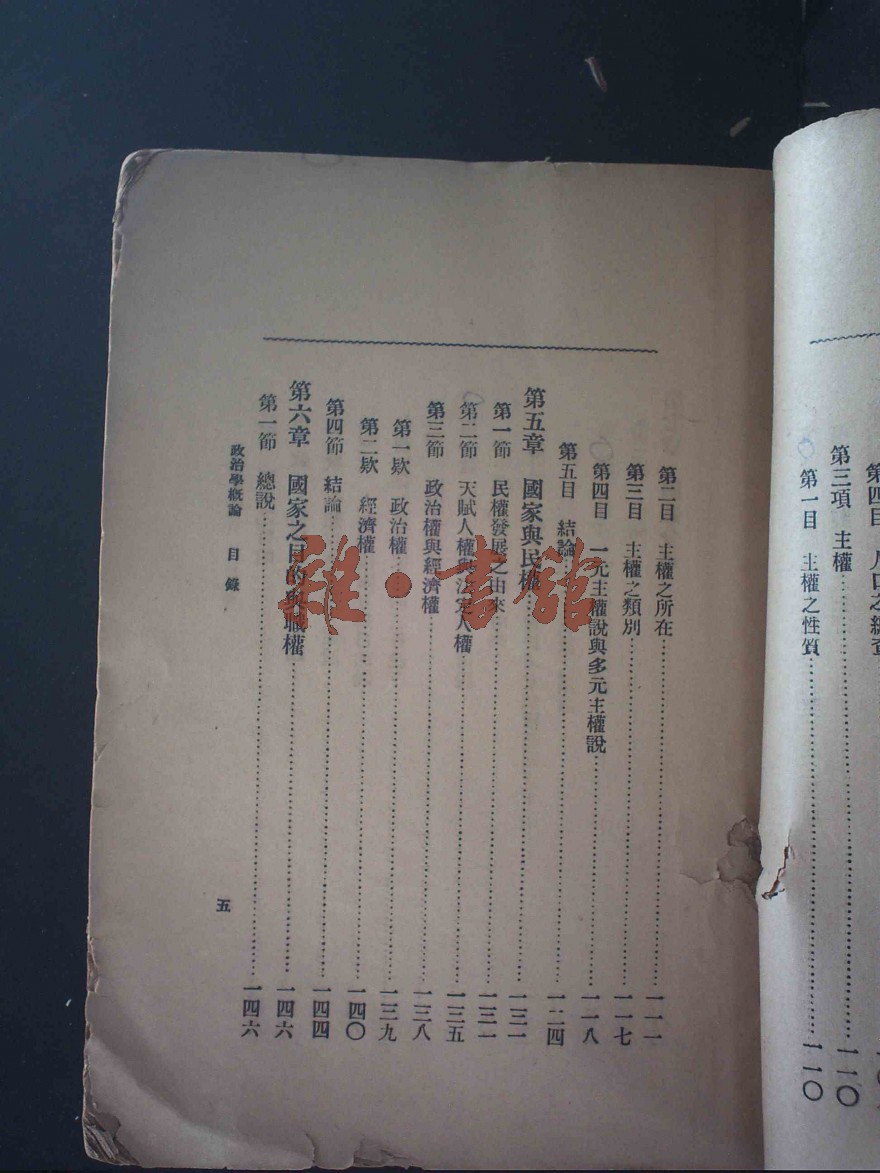 第三項　主權……一一〇
第一目　主權之性質……一一〇
第二目　主權之所在……一一一
第三目　主權之類別……一一七
第四目　一元主權說與多元主權說……一一八
第五目　結論……一二四
第五章　國家與民權……一三一
第一節　民權發展之由來……一三一
第二節　天賦人權與法定人權……一三五
第三節　政治權與經濟權……一三八
第一欵　政治權……一三九
第二欵　經濟權……一四〇
第四節　結論……一四四
第六章　國家之目的與職權……一四六
第一節　總說……一四六
政治學概論　目錄
五
雜·書館